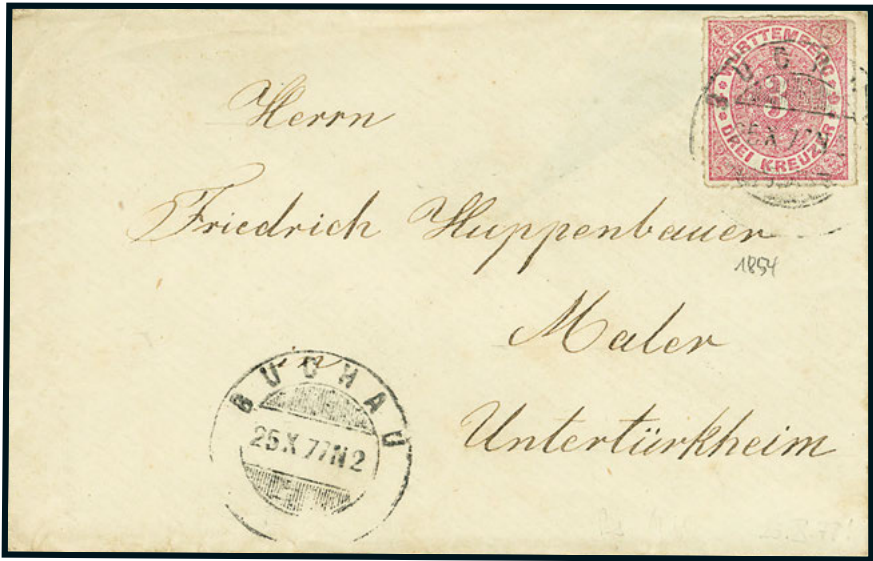 WÜRTTEMBERG
3
DREI KREUZER
BUCHAU
25.X 77N
Herrn
Friedrich Huppenbauer
1854
Maler
in
Untertürkheim
BUCHAU
25.X 77N2